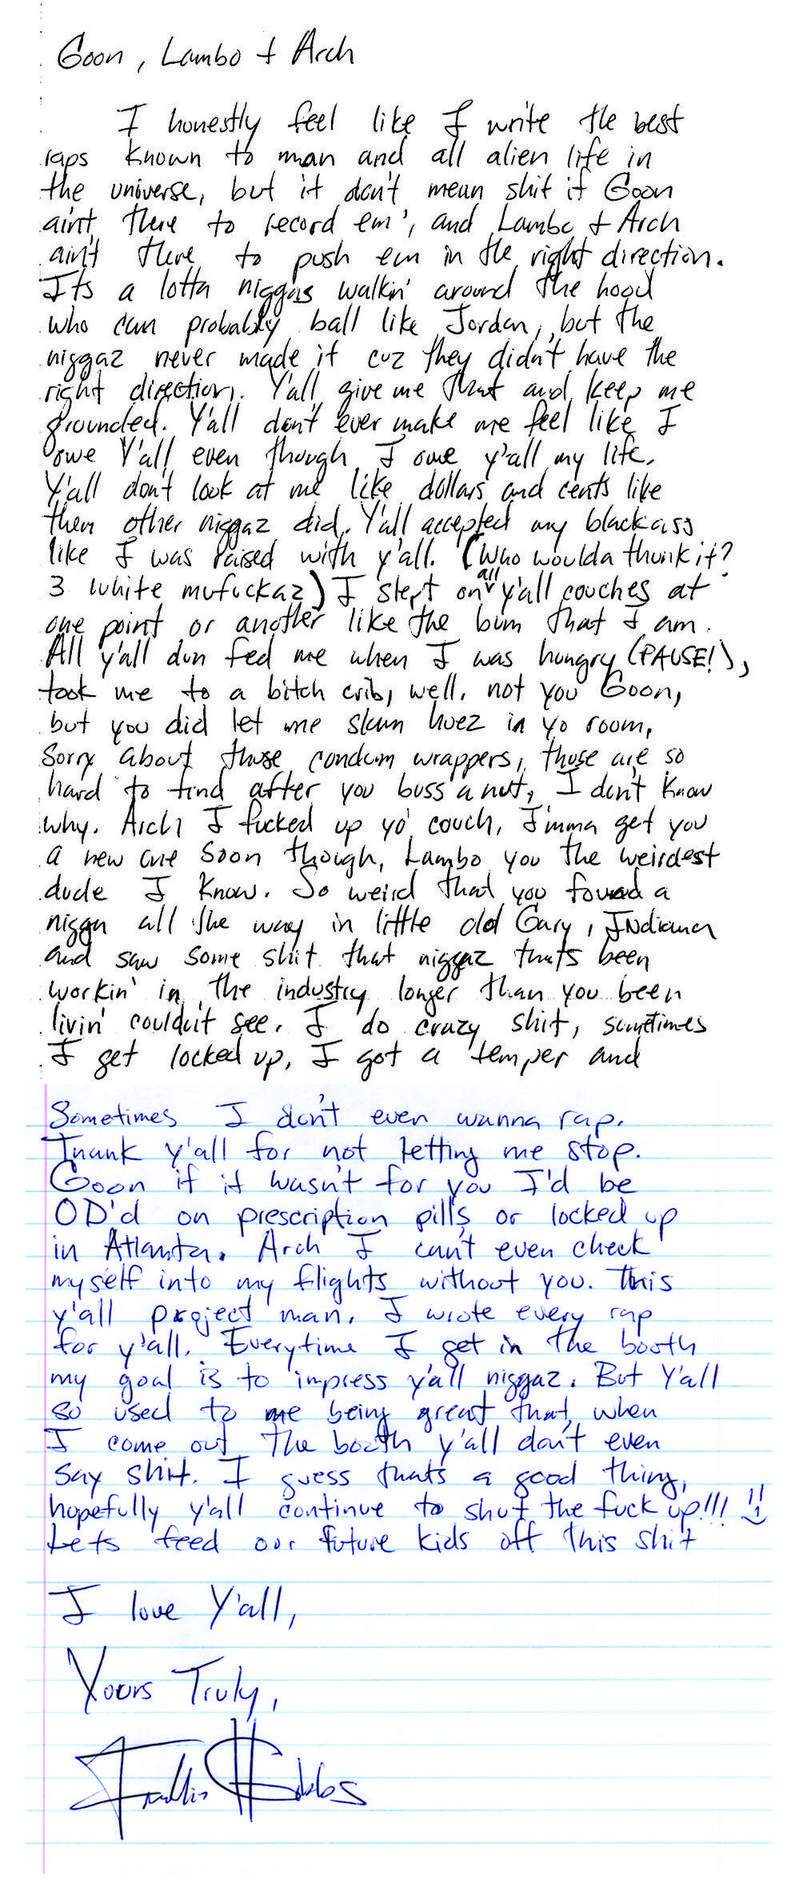 Goon, Lambo + Arch
I honestly feel like I write the best
raps known to man and all alien life in
the universe, but it don't mean shit if Goon
ain't there to record em', and Lambo + Arch
ain't there to push em in the right direction.
Its a lotta niggas walkin' around the hood
who can probably ball like Jordan, but the
niggaz never made it cuz they didn't have the
right direction. Y'all give me that and keep me
grounded. Y'all don't ever make me feel like I
owe Y'all even though I owe y'all my life.
Y'all don't look at me like dollars and cents like
them other niggaz did. Y'all accepted my blackass
like I was raised with y'all. (Who woulda thunk it?
3 white mufuckaz) I slept on all y'all couches at
one point or another like the bum that I am.
All y'all dun fed me when I was hungry (PAUSE!),
took me to a bitch crib, well, not you Goon,
but you did let me slam hoez in yo room,
Sorry about those condum wrappers, those are so
hard to find after you buss a nut, I don't know
why. Arch I fucked up yo' couch, I'mma get you
a new one soon though, Lambo you the weirdest
dude I know. So weird that you found a
nigga all the way in little old Gary, INdiana
and saw some shit that niggaz thats been
workin' in the industry longer than you been
livin' couldn't see. I do crazy shit, sometimes
I get locked up, I got a temper and
Sometimes I don't even wanna rap.
Thank y'all for not letting me stop.
Goon if it wasn't for you I'd be
OD'd on prescription pills or locked up
in Atlanta. Arch I can't even check
myself into my flights without you. This
y'all project man. I wrote every rap
for y'all. Everytime I get in the booth
my goal is to impress y'all niggaz. But Y'all
so used to me being great that when
I come out the booth y'all don't even
say shit. I guess thats a good thing,
hopefully y'all continue to shut the fuck up!!!
Lets feed our future kids off this shit
I love Y'all,
Yours Truly,
Freddie Gibbs